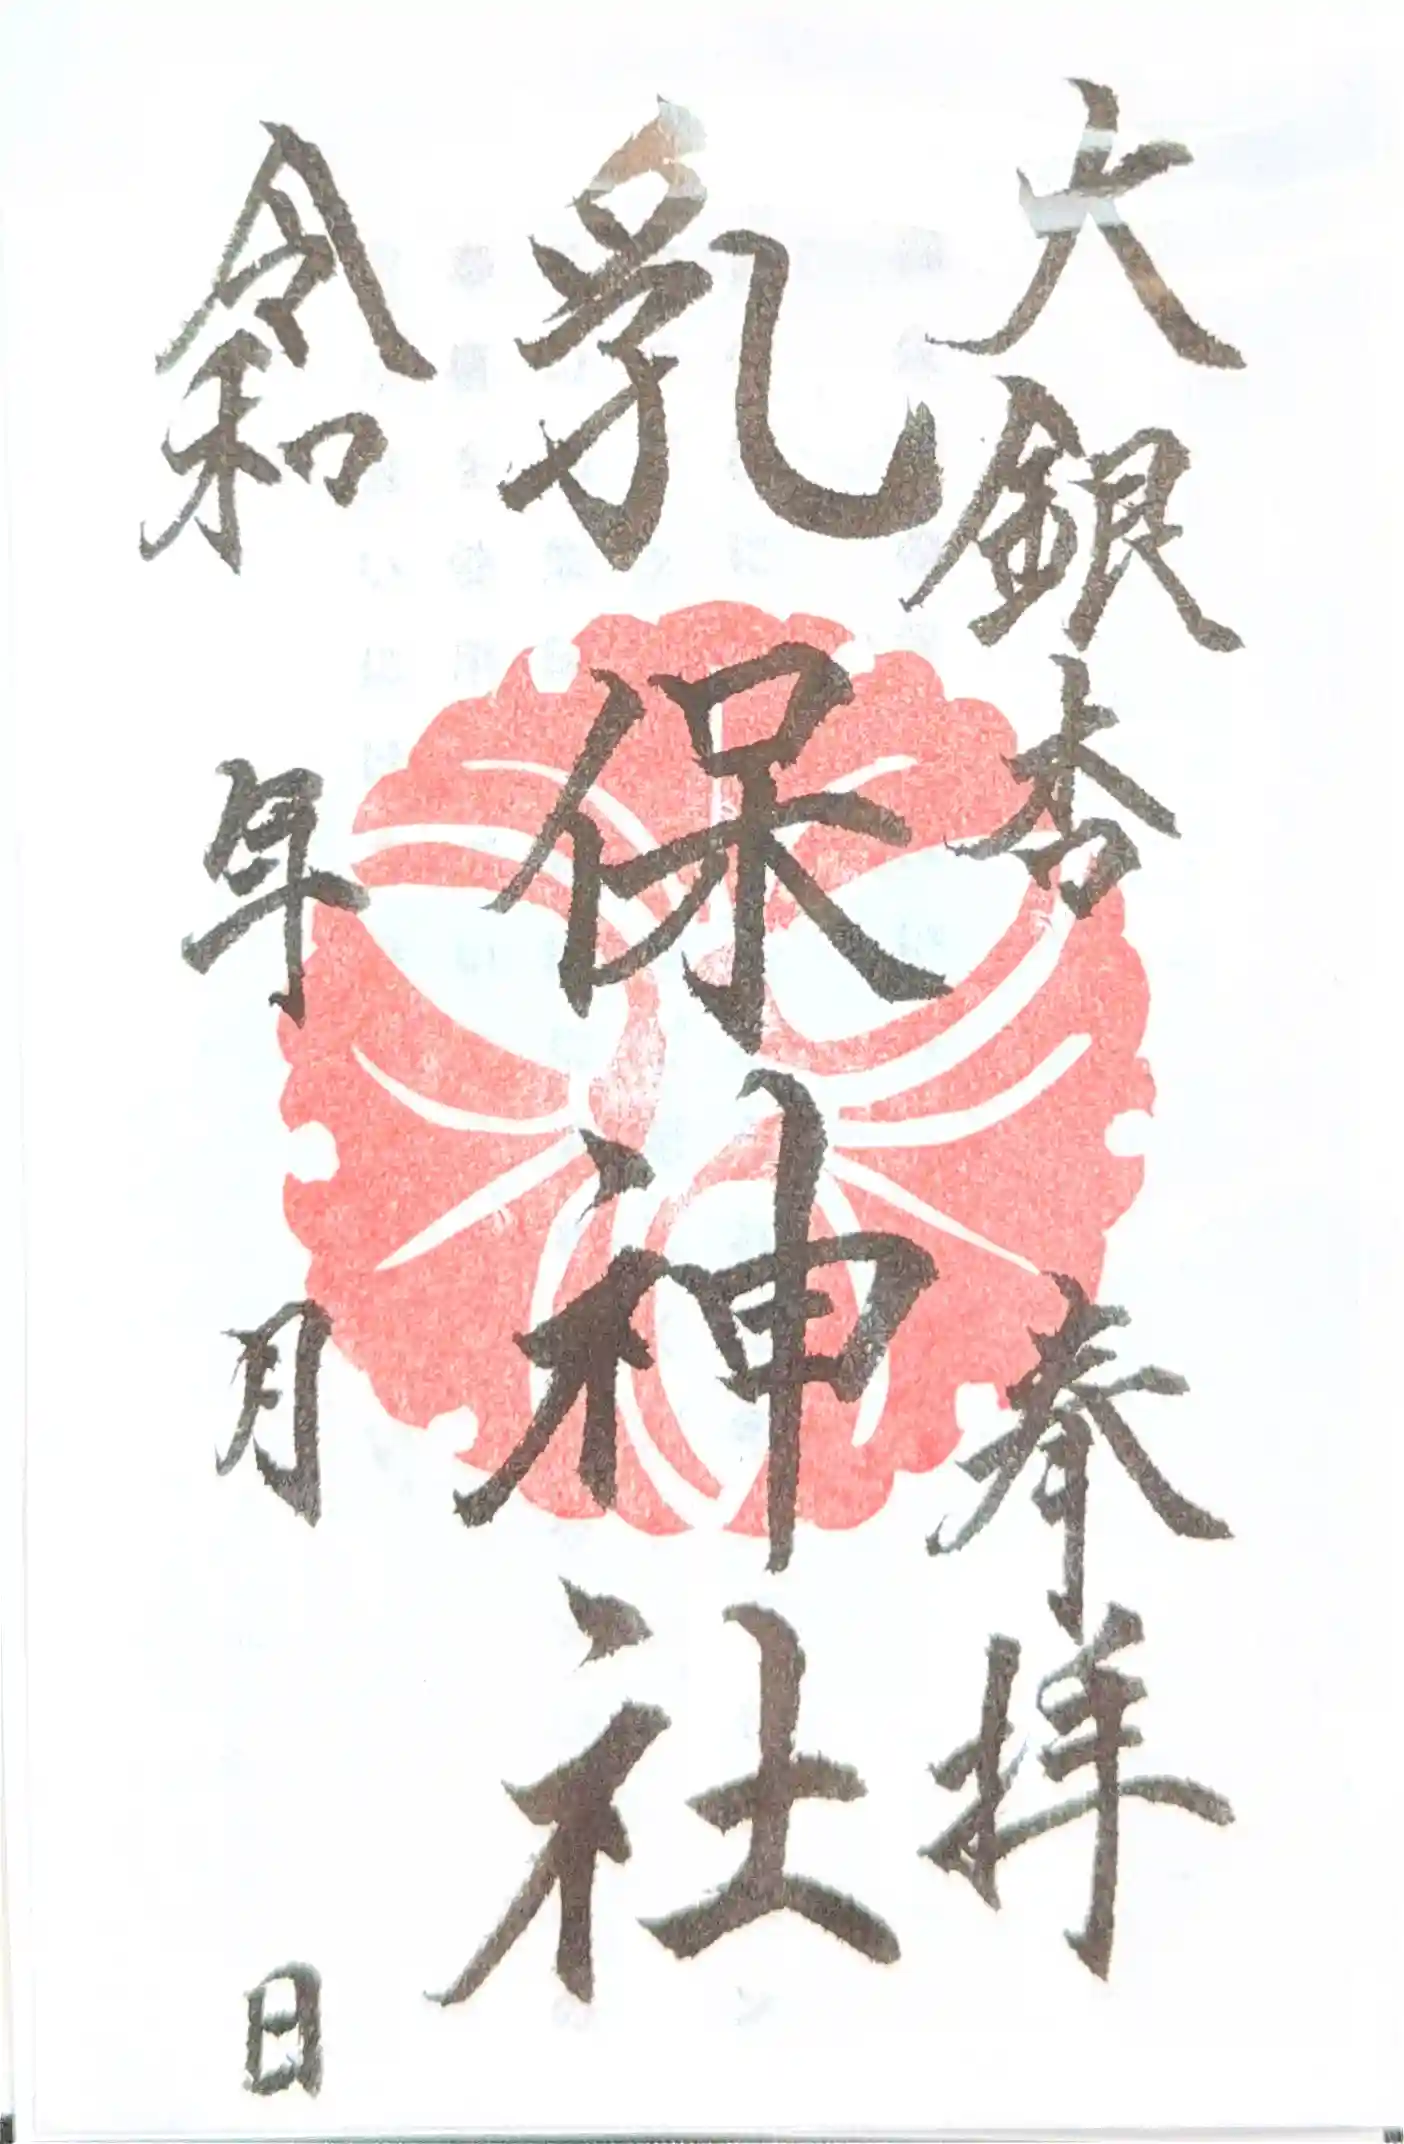 大銀杏 奉拝
乳保神社
令和 年 月 日